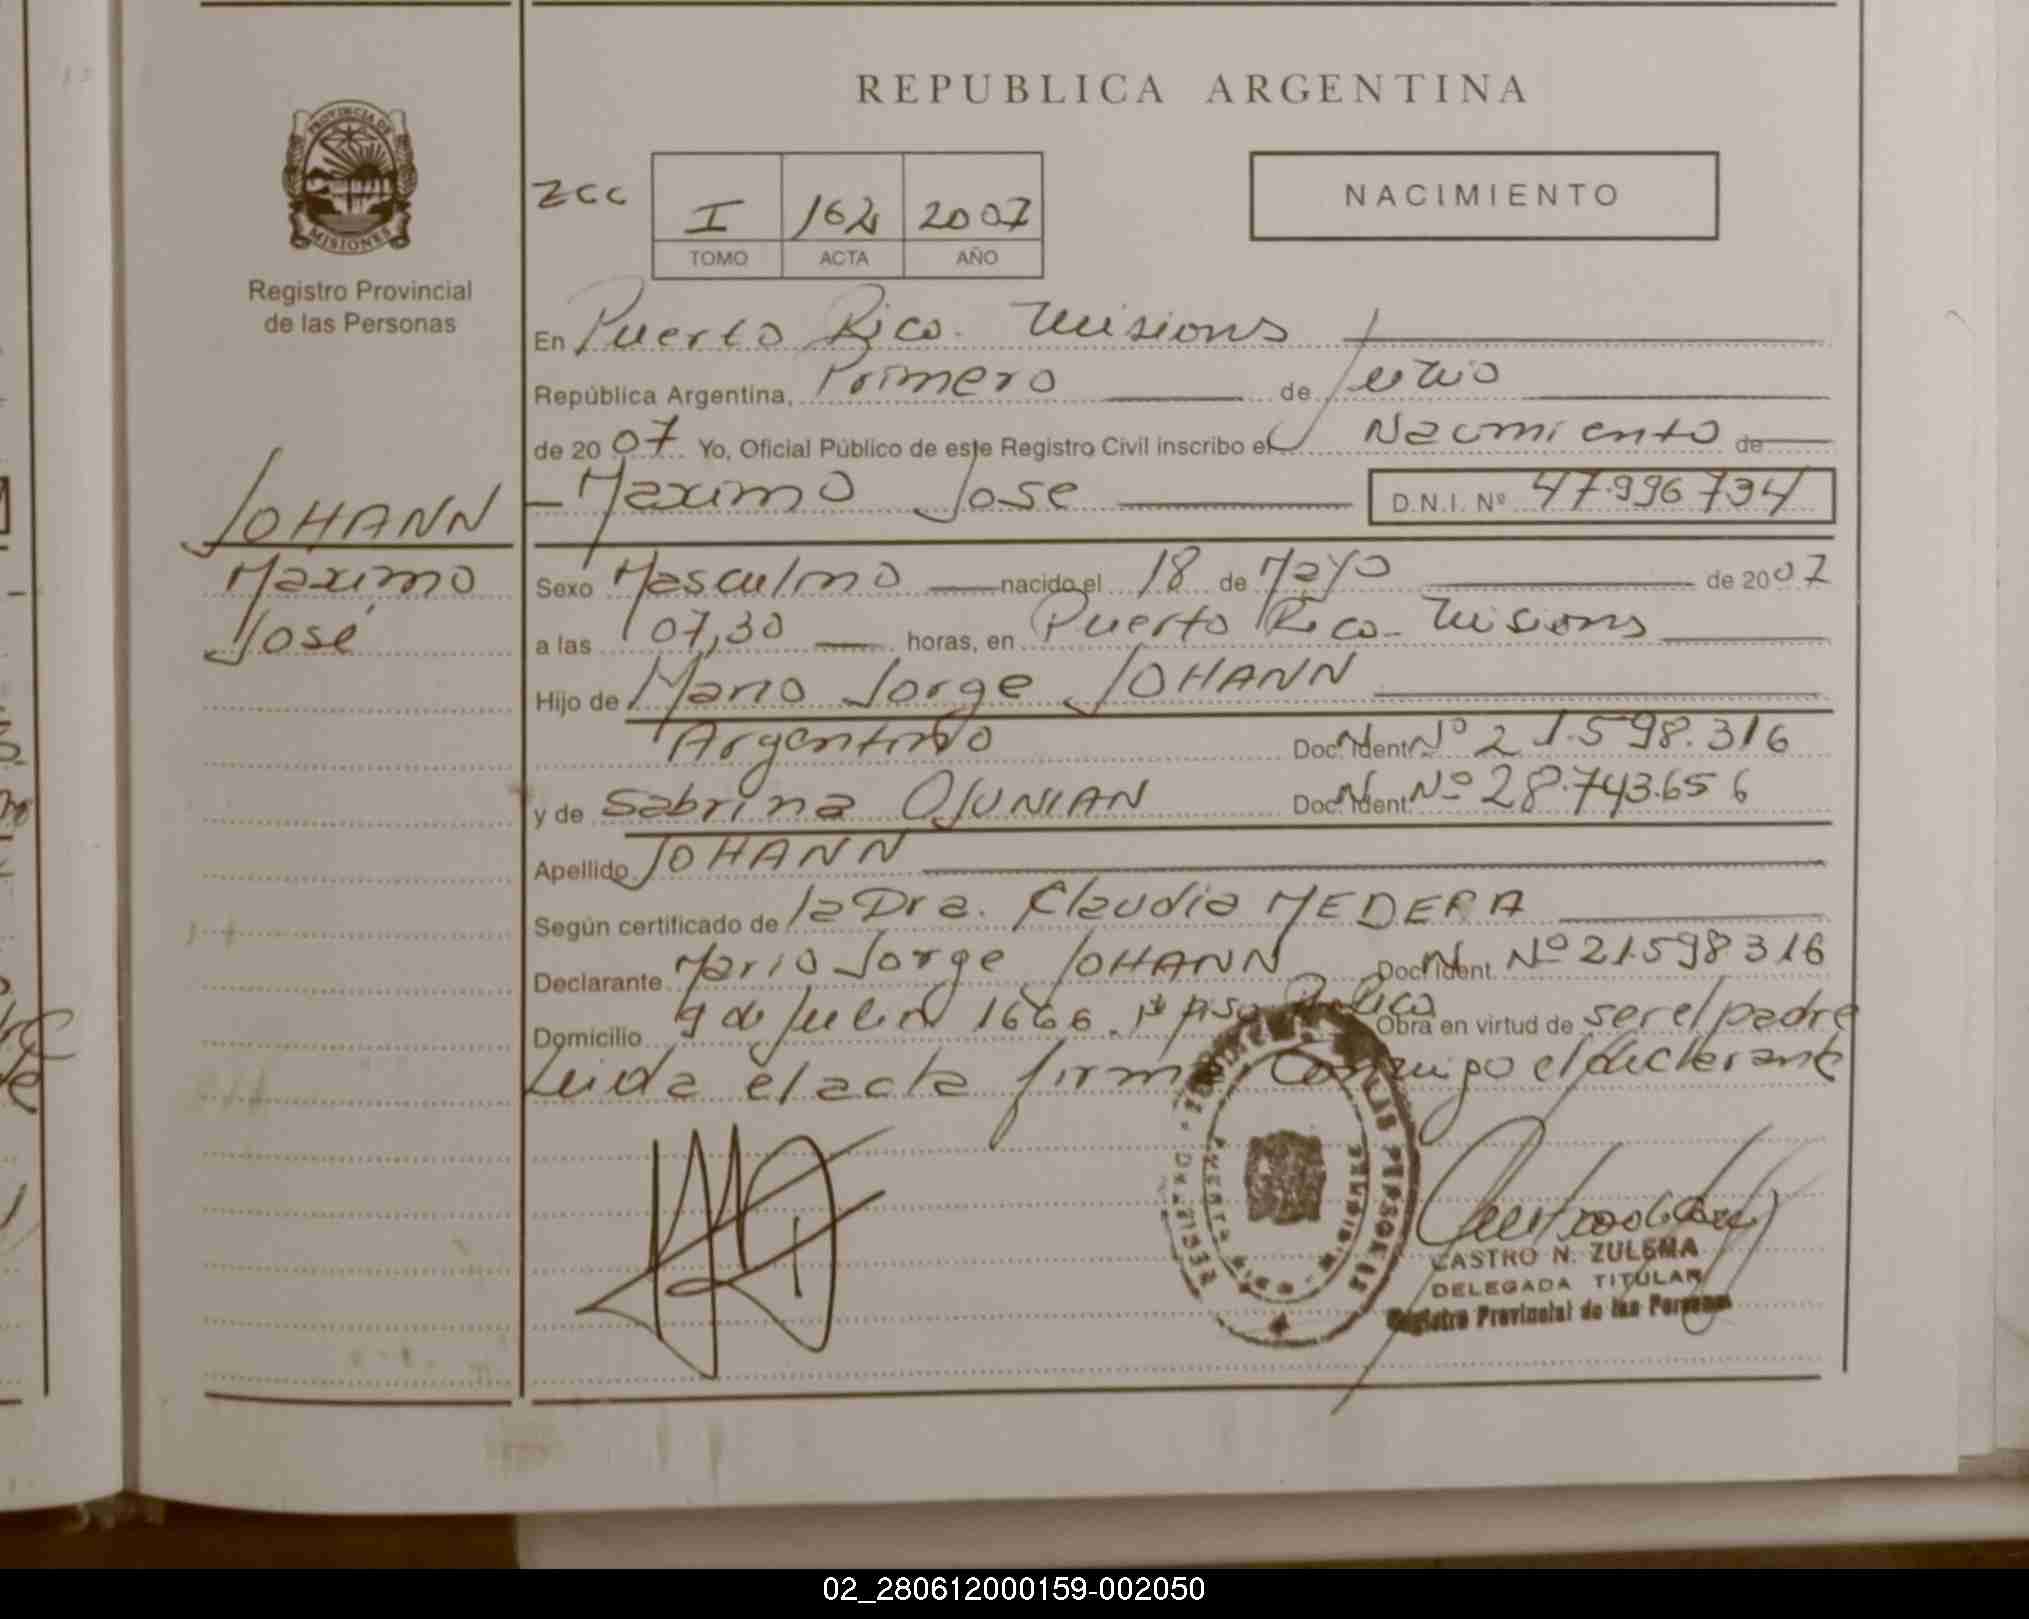 REPUBLICA ARGENTINA
PROVINCIA DE
MISIONES
Registro Provincial
de las Personas
zcc
I 162 2007
TOMO ACTA AÑO
NACIMIENTO
En Puerto Rico. Misions
República Argentina, Primero de Junio
de 2007 Yo, Oficial Público de este Registro Civil inscribo el Nacimiento de
Maximo Jose D.N.I. Nº 47.996 734
JOHANN
Maximo
José
Sexo Masculino nacido el 18 de Mayo de 2007
a las 07,30 horas, en Puerto Rico - Misions
Hijo de Mario Jorge JOHANN
Argentino Doc. Ident. Nº 21.598.316
y de Sabrina OJUNIAN Doc. Ident. Nº 28.743.656
Apellido JOHANN
Según certificado de la Dra. Claudia MEDERA
Declarante Mario Jorge JOHANN Doc. Ident. Nº 21598316
Domicilio 9 de Julio 1666. Obra en virtud de ser el padre
Leida el acta firma conmigo el declarante
CASTRO N. ZULEMA
DELEGADA TITULAR
Registro Provincial de las Personas
02_280612000159-002050